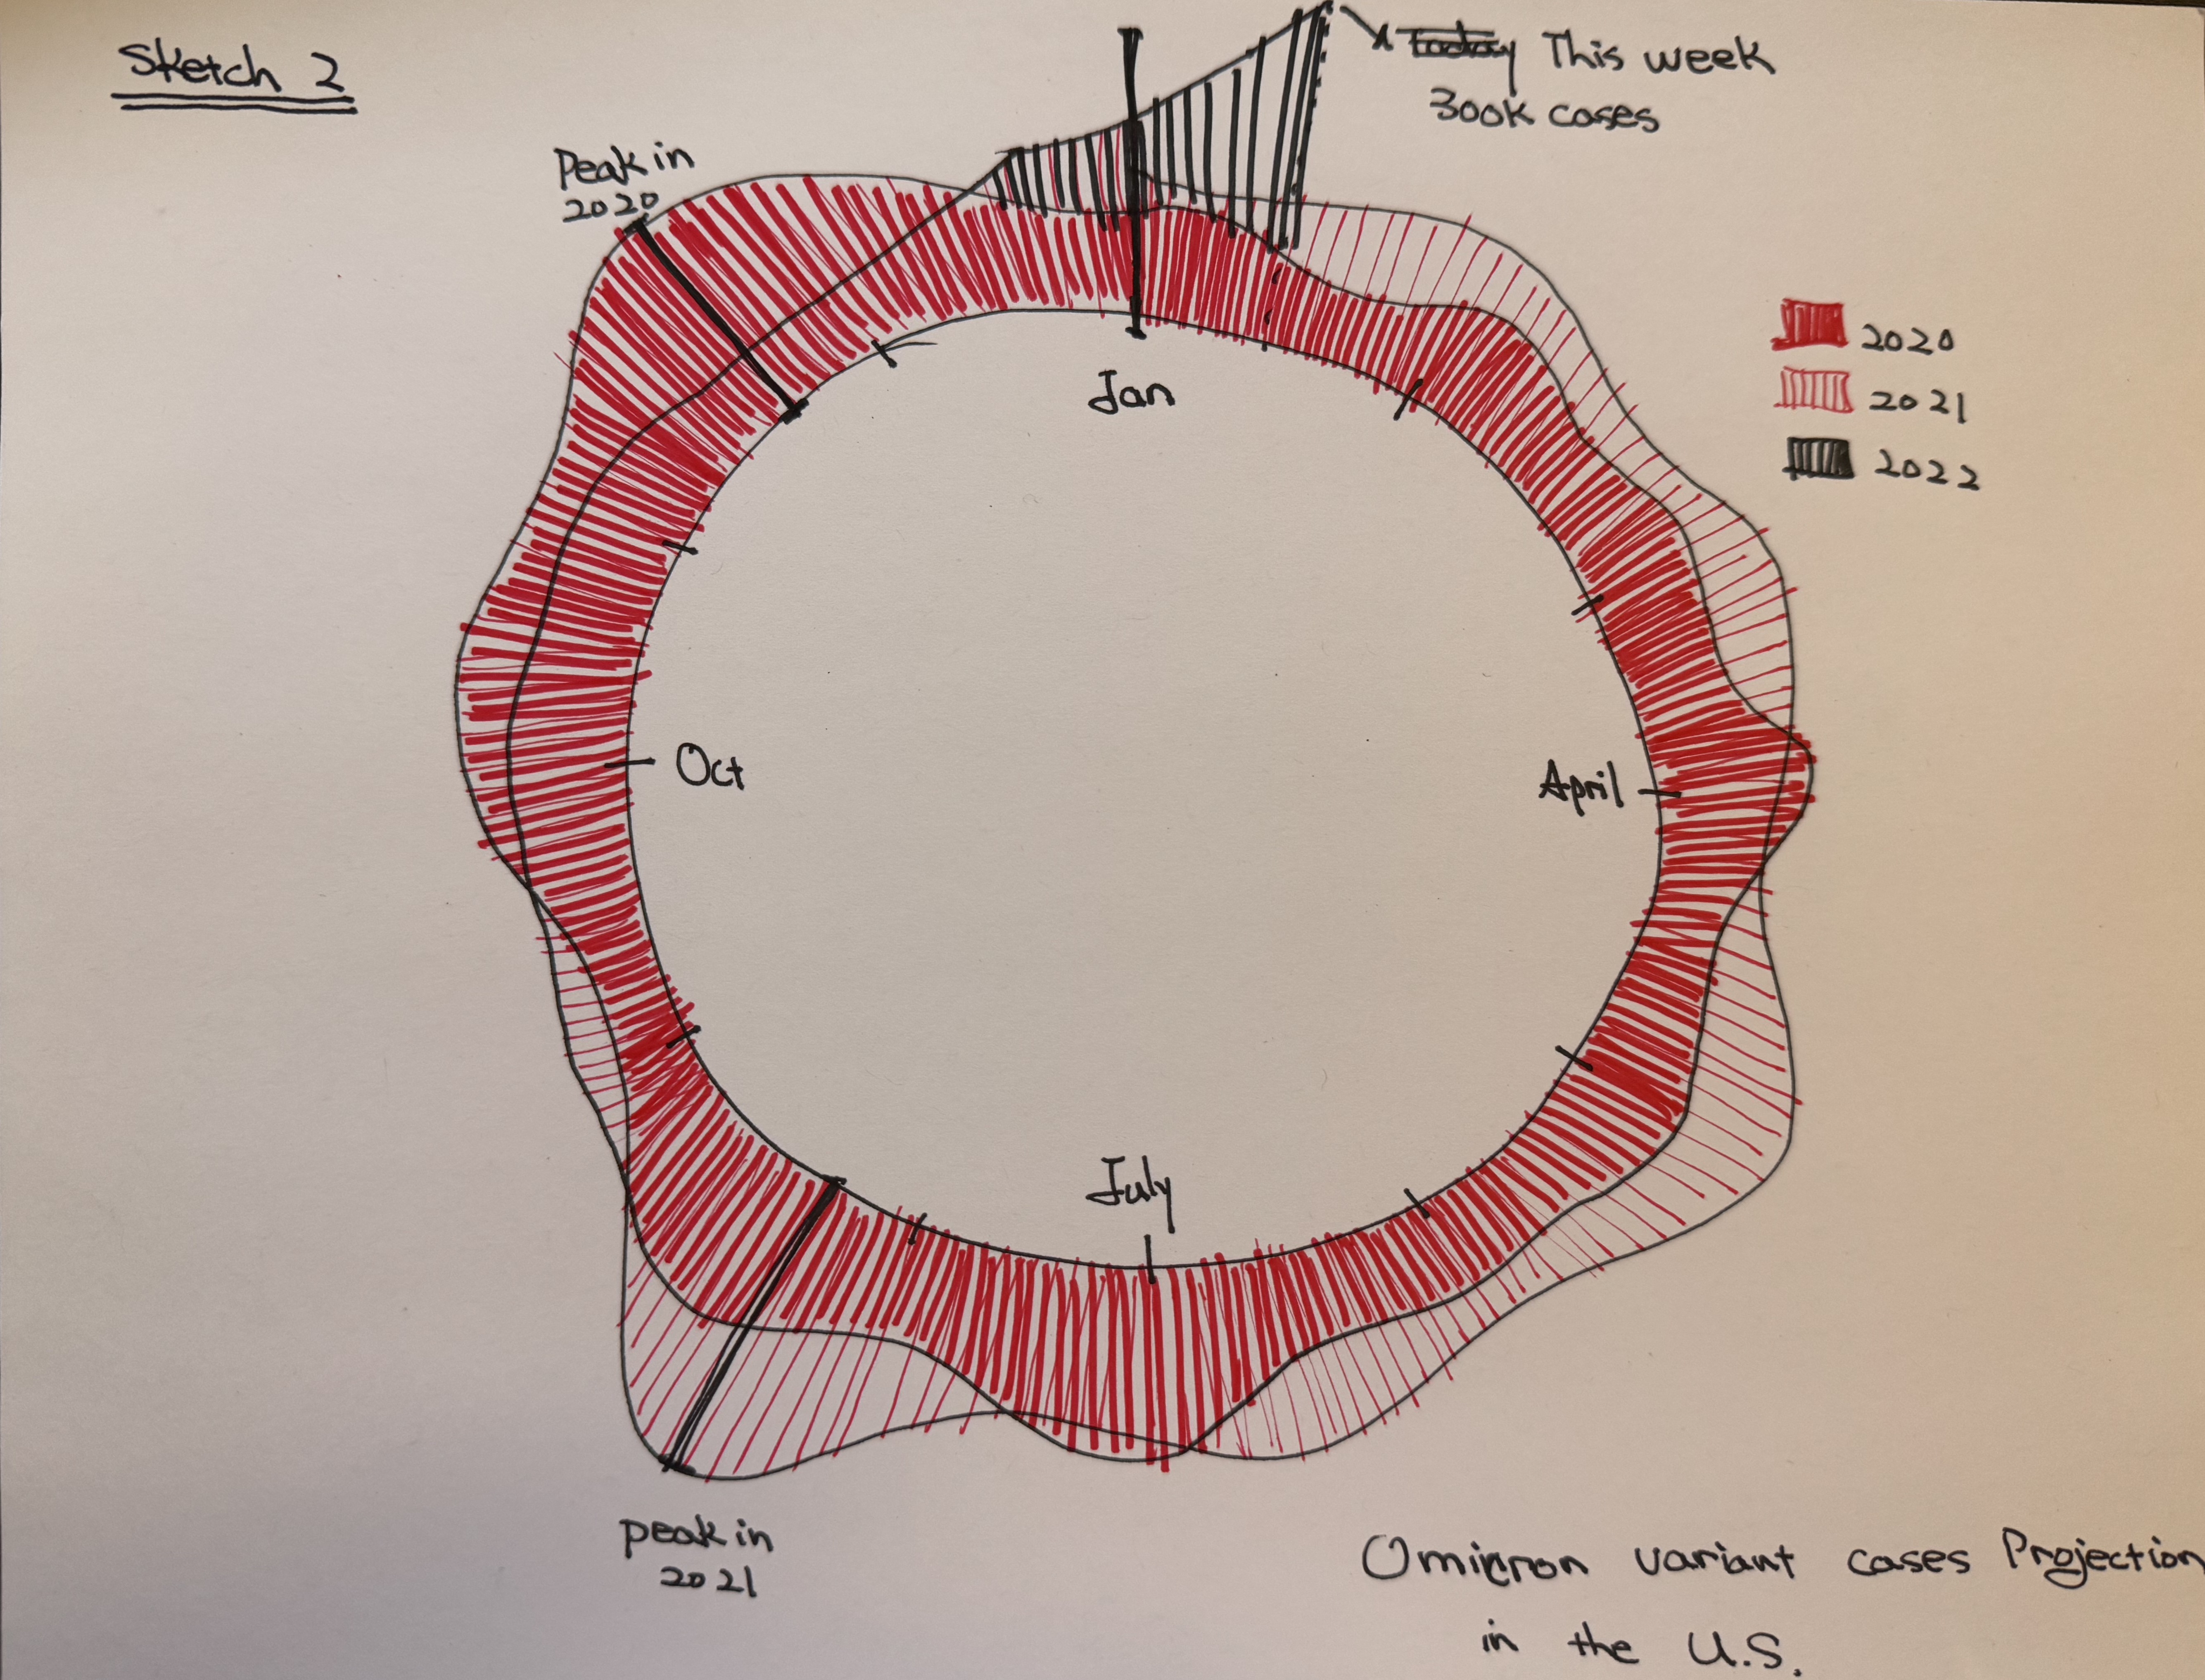 Sketch 2
Today This week
300k cases
Peak in
2020
2020
2021
2022
Jan
Oct
April
July
peak in
2021
Omicron variant cases Projection
in the U.S.